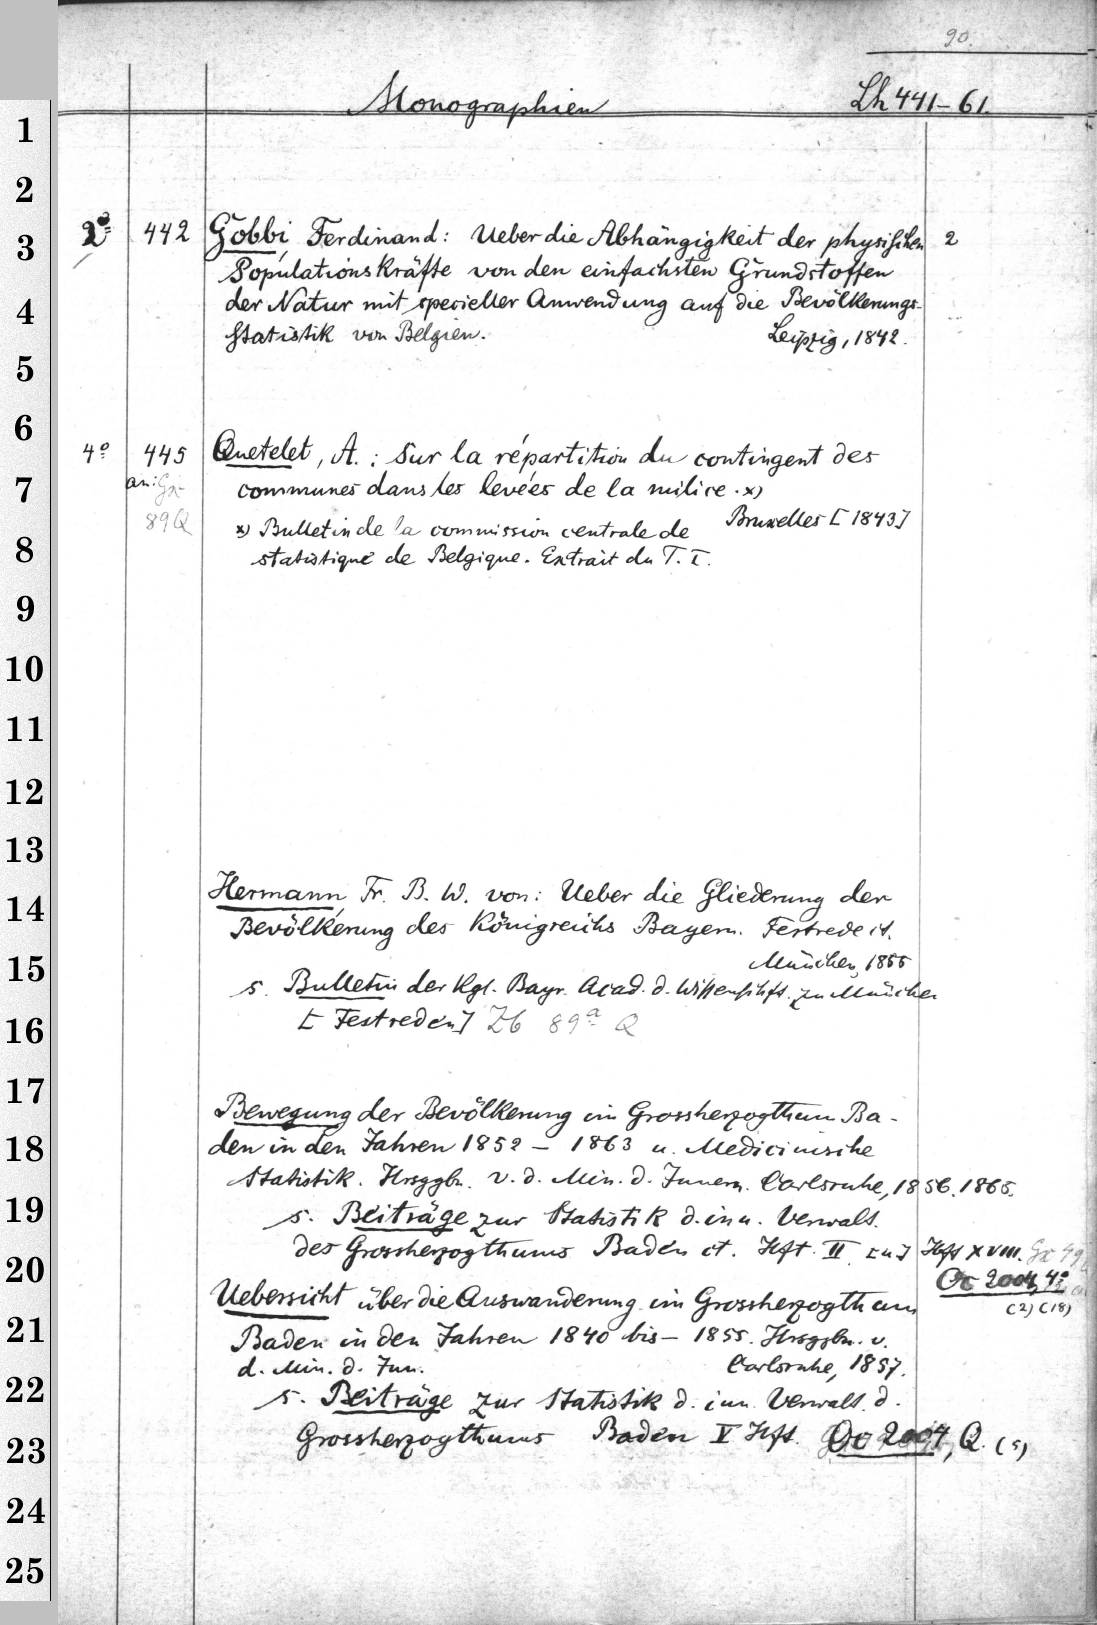 90.
Monographien Lh 441-61.
1
2
3
4
5
6
7
8
9
10
11
12
13
14
15
16
17
18
19
20
21
22
23
24
25
2º 442 Gobbi, Ferdinand: Ueber die Abhängigkeit der physischen 2
Populationskräfte von den einfachsten Grundstoffen
der Natur mit specieller Anwendung auf die Bevölkerungs-
statistik von Belgien. Leipzig, 1842.
4º 445 Quetelet, A.: Sur la répartition du contingent des
an: Gx communes dans les levées de la milice. x)
89 Q Bruxelles [1843]
x) Bulletin de la commission centrale de
statistique de Belgique. Extrait du T. I.
Hermann, Fr. B. W. von: Ueber die Gliederung der
Bevölkerung des Königreichs Bayern. Festrede ct.
München, 1855
s. Bulletin der Kgl. Bayr. Acad. d. Wissenschft. zu München
[Festreden] Zb 89ª Q
Bewegung der Bevölkerung im Grossherzogthum Ba-
den in den Jahren 1852 - 1863 u. Medicinische
Statistik. Hrsggbn. v. d. Min. d. Innern. Carlsruhe, 1856. 1865.
s. Beiträge zur Statistik d. inn. Verwalt.
des Grossherzogthums Baden ct. Hft. II [u] Hft XVIII. Gx
Oc 2004, 4º
(2) (18)
Uebersicht über die Auswanderung im Grossherzogthum
Baden in den Jahren 1840 bis - 1855. Hrsggbn. v.
d. Min. d. Inn. Carlsruhe, 1857.
s. Beiträge zur Statistik d. inn. Verwalt. d.
Grossherzogthums Baden V Hft. Oc 2004, Q. (5)